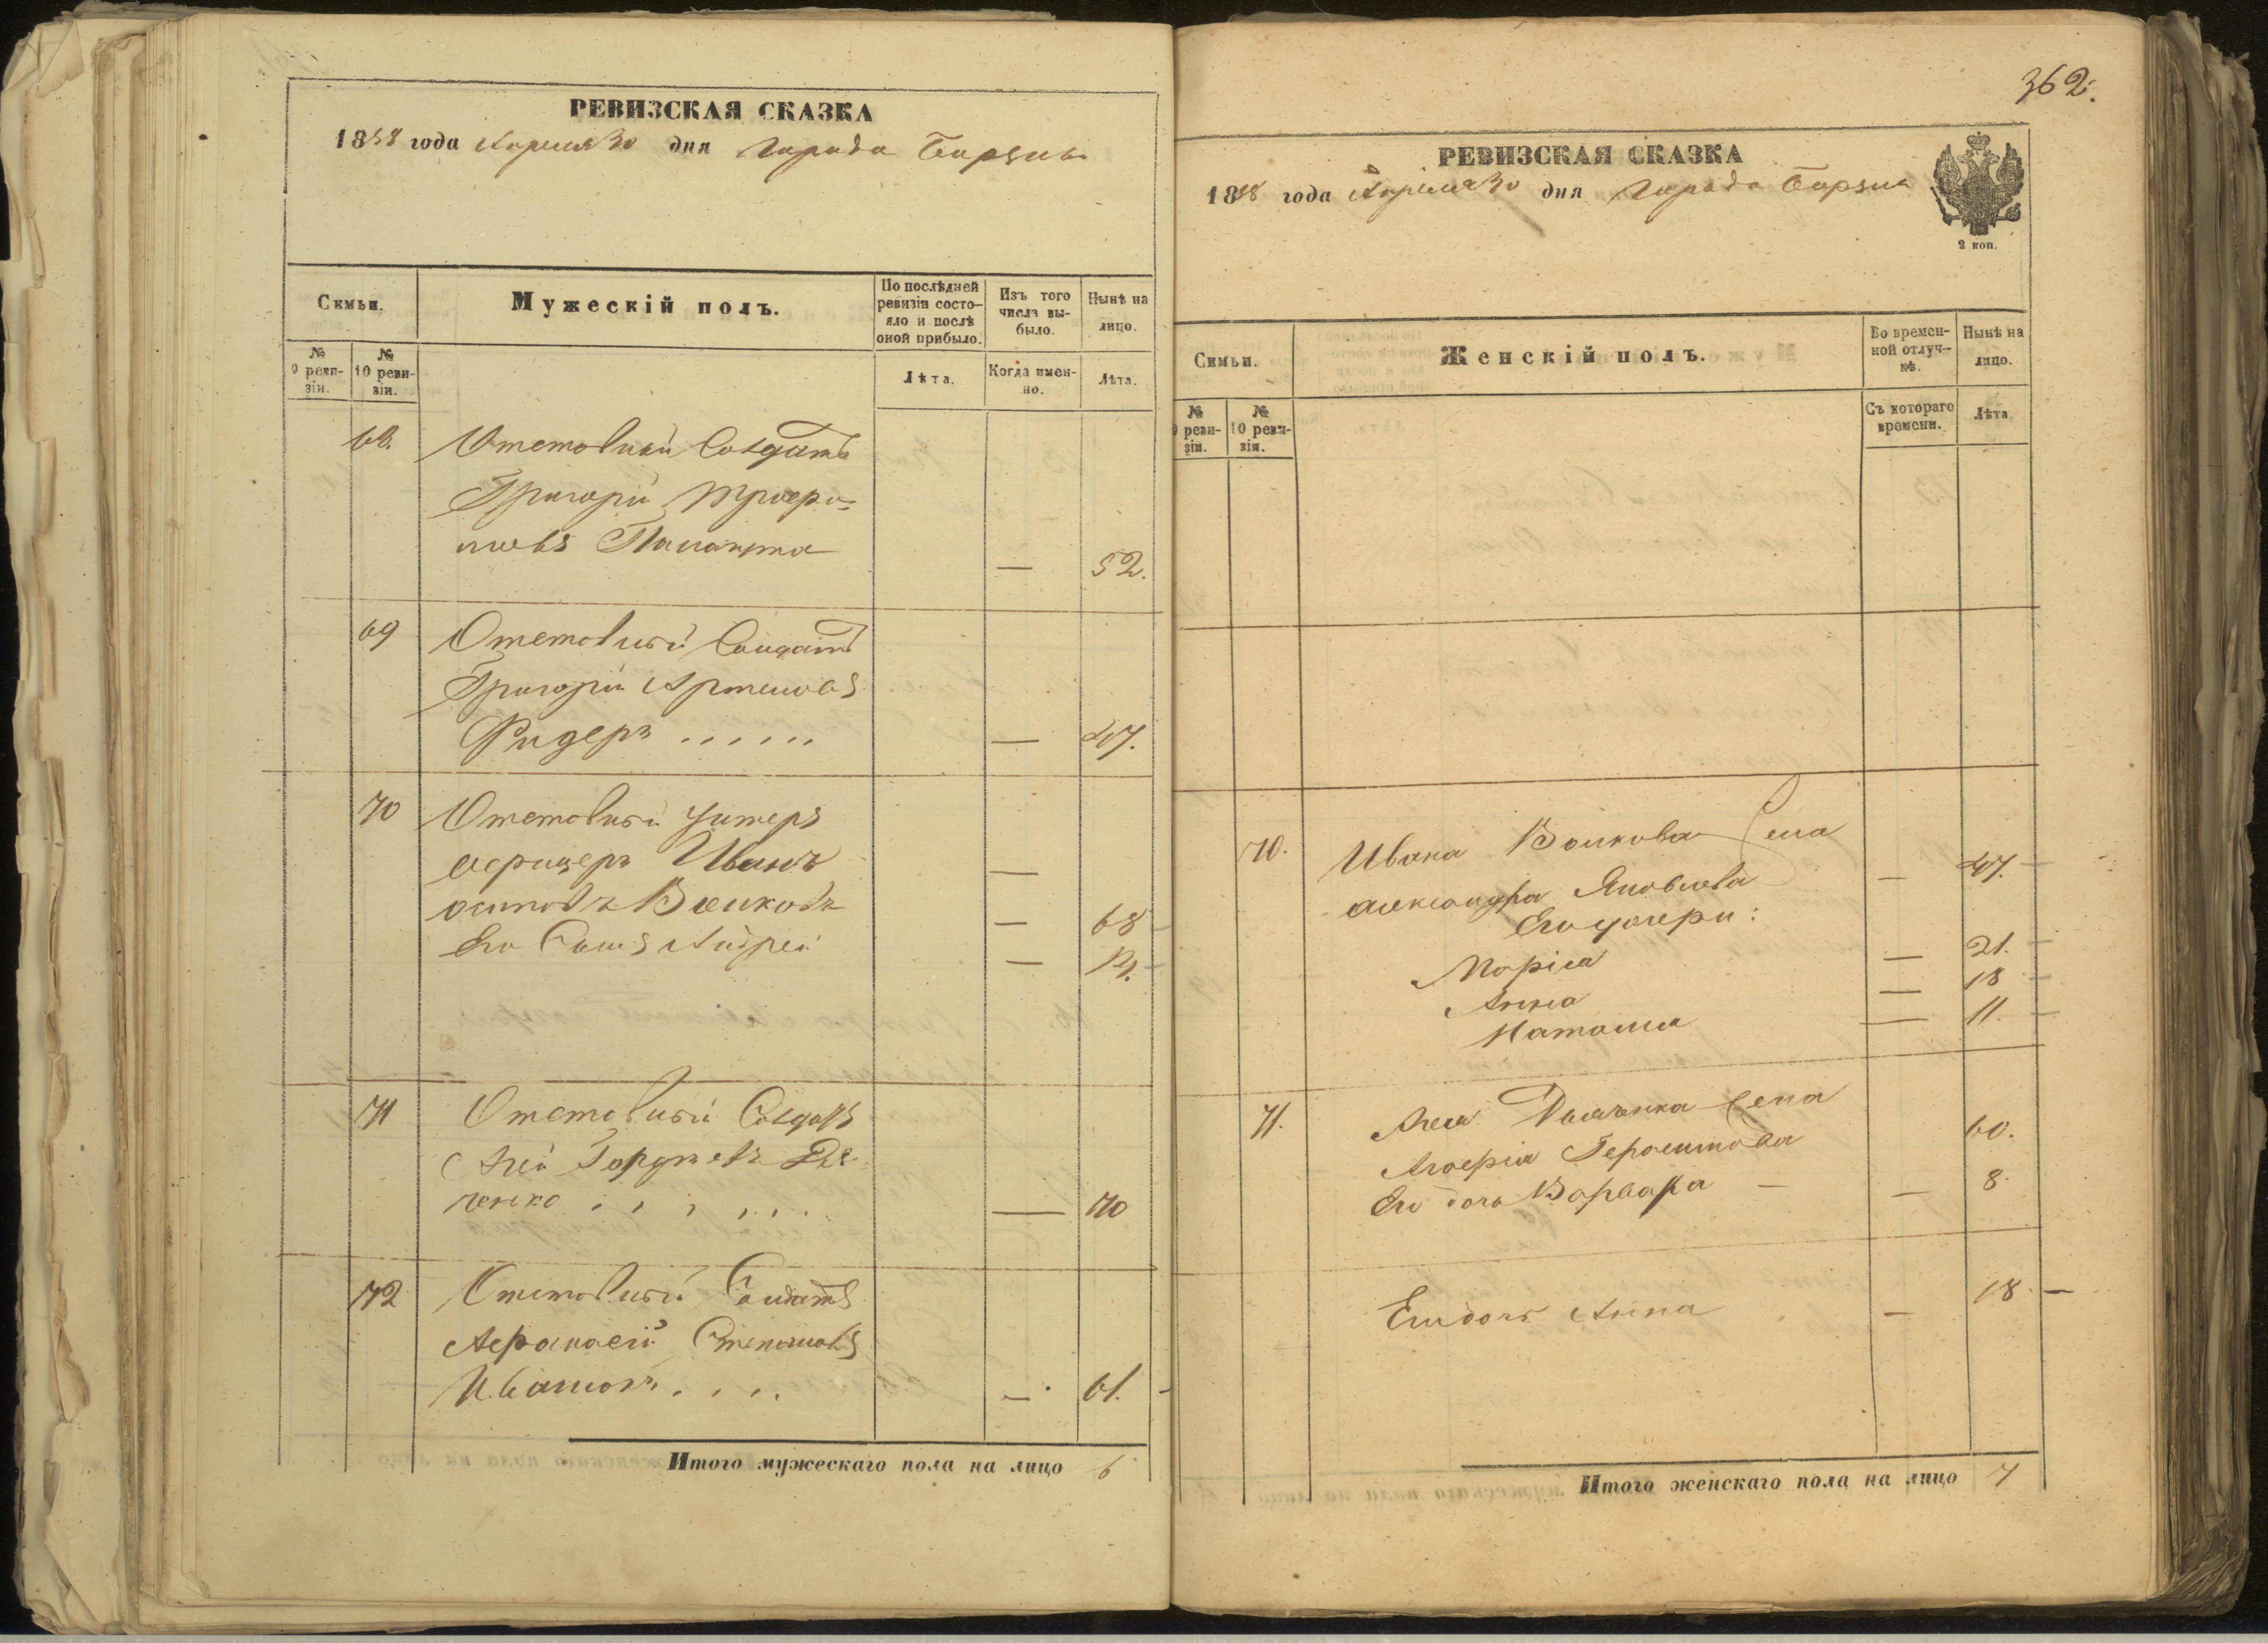 РЕВИЗСКАЯ СКАЗКА
1858 года Апреля 30 дня Города Борзны
Семьи.
Мужескій полъ.
По послѣдней ревизіи состо-
яло и послѣ оной прибыло.
Изъ того числа вы-
было.
Нынѣ на лицо.
№ 9 реви-
зіи.
№ 10 реви-
зіи.
Лѣта.
Когда имен-
но.
Лѣта.
68. Отставный Солдатъ
Григорій
52.
69 Отставный Солдатъ
Григорій Артемовъ
Фидеръ ......
— 47.
70 Отставный Унтеръ
офицеръ Иванъ —
осиповъ Волковъ — 68
Его Сынъ Андрей —
71 Отставный Солдатъ
Гордеевъ Дя-
ченко — 70
72 Отставный Солдатъ
Афанасій Степановъ
Ивановъ . . . — 61.
Итого мужескаго пола на лицо 6
362.
РЕВИЗСКАЯ СКАЗКА
1858 года Апреля 30 дня Города Борзны
2 коп.
Семьи.
Женскій полъ.
Во времен-
ной отлуч-
кѣ.
Нынѣ на лицо.
№ 9 реви-
зіи.
№ 10 реви-
зіи.
Съ котораго времени.
Лѣта.
70. Ивана Волкова жена
александра Яковлева — 47.
Его дочери:
Марія — 21.
Анна — 18
Наталия — 11.
71. Дьяченка жена
Агафія Герасимова 60.
Его дочь Варвара — 8.
Его дочь Анна — 18.
Итого женскаго пола на лицо 7